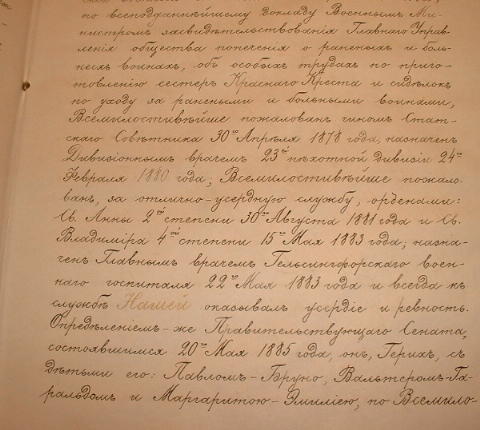 по всеподданнѣйшему докладу Военнымъ Ми-
нистромъ засвидѣтельствованія Главнаго Управ-
ленія общества попеченія о раненыхъ и боль-
ныхъ воинахъ, объ особыхъ трудахъ по приго-
товленію сестеръ Краснаго Креста и сидѣлокъ
по уходу за ранеными и больными воинами,
Всемилостивѣйше пожалованъ чиномъ Стат-
скаго Совѣтника 30го Апрѣля 1878 года, назначенъ
Дивизіоннымъ врачемъ 23й пѣхотной дивизіи 24го
Февраля 1880 года; Всемилостивѣйше пожало-
ванъ, за отлично-усердную службу, орденами:
Св. Анны 2й степени 30го Августа 1881 года и Св.
Владиміра 4й степени 15го Мая 1883 года; назна-
ченъ Главнымъ врачемъ Гельсингфорскаго воен-
наго госпиталя 22го Мая 1883 года и всегда къ
службѣ Нашей оказывалъ усердіе и ревность.
Опредѣленіемъ-же Правительствующаго Сената,
состоявшимся 20го Мая 1885 года, онъ, Герихъ, съ
дѣтьми его: Павломъ-Бруно, Вальтеромъ-Га-
ральдомъ и Маргаритою-Эмиліею, по Всемило-